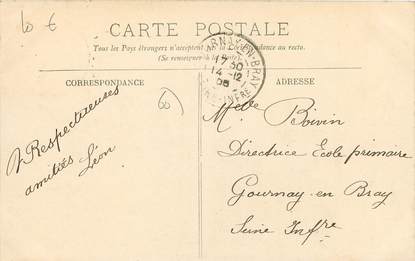 10 €
CARTE POSTALE
Tous les Pays étrangers n'acceptent pas la Correspondance au recto.
(Se renseigner à la Poste).
CORRESPONDANCE
ADRESSE
17 30
14 - 12
08
60
Respectueuses
amitiés Léon
Melle Boivin
Directrice École primaire
Gournay-en Bray
Seine Infre